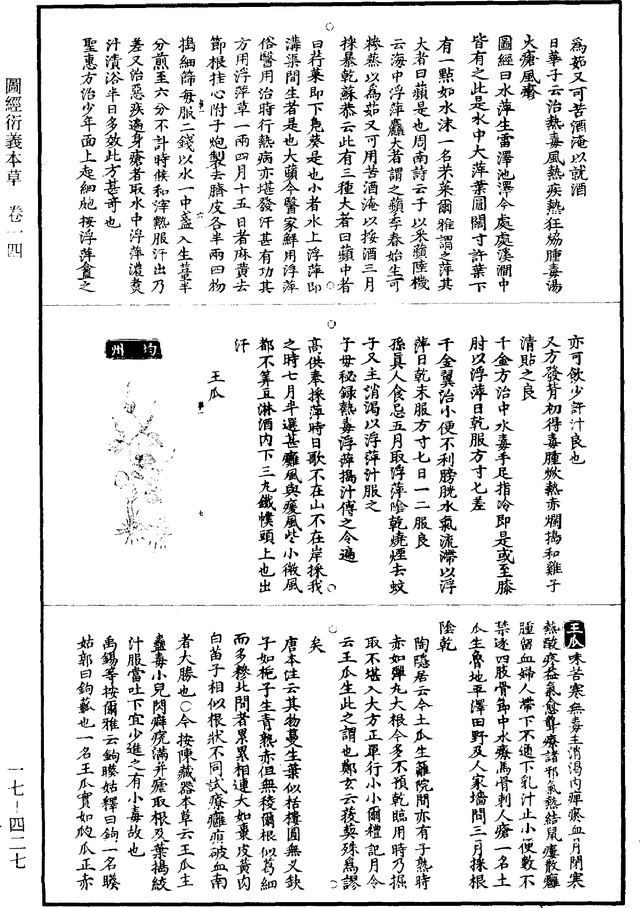 圖經衍義本草　卷一四
一七－四二七
為茹又可苦酒淹以就酒
日華子云治熱毒風熱疾熱狂熁腫毒湯
火瘡風疹
圖經曰水萍生雷澤池澤今處處溪澗中
皆有之此是水中大萍葉圓闊寸許葉下
有一點如水沫一名芣菜爾雅謂之萍其
大者曰蘋是也周南詩云于以采蘋陸機
云海中浮萍麤大者謂之蘋季春始生可
糝蒸以為茹又可用苦酒淹以按酒三月
採暴乾蘇恭云此有三種大者曰蘋中者
曰荇菜即下鳧葵是也小者水上浮萍即
溝渠間生者是也大蘋今醫家鮮用浮萍
俗醫用治時行熱病亦堪發汗甚有功其
方用浮萍草一兩四月十五日者麻黃去
節根桂心附子炮製去臍皮各半兩四物
搗細篩每服二錢以水一中盞入生薑半
分煎至六分不計時候和滓熱服汗出乃
差又治惡疾遍身瘡者取水中浮萍濃煑
汁漬浴半日多效此方甚奇也
聖惠方治少年面上起細皰按浮萍盦之
亦可飲少許汁良也
又方發背初得毒腫焮熱赤爛搗和雞子
清貼之良
千金方治中水毒手足指冷即是或至膝
肘以浮萍日乾服方寸匕差
千金翼治小便不利膀胱水氣流滯以浮
萍日乾末服方寸匕日一二服良
孫真人食忌五月取浮萍陰乾燒煙去蚊
子又主消渴以浮萍汁服之
子母秘錄熱毒浮萍搗汁傅之令遍
高供奉採萍時日歌不在山不在岸採我
之時七月半選甚癱風與瘓風些小微風
都不筭豆淋酒內下三丸鐵幞頭上也出
汗
王瓜
均州
王瓜味苦寒無毒主消渴內痺瘀血月閉寒
熱酸疼益氣愈聾療諸邪氣熱結鼠瘻散癰
腫留血婦人帶下不通下乳汁止小便數不
禁逐四肢骨節中水療馬骨刺人瘡一名土
瓜生魯地平澤田野及人家墻間三月採根
陰乾
陶隱居云今土瓜生籬院間亦有子熟時
赤如彈丸大根今多不預乾臨用時乃掘
取不堪入大方正單行小小爾禮記月令
云王瓜生此之謂也鄭玄云菝葜殊為謬
矣
唐本注云其物蔓生葉似栝樓圓無叉缺
子如梔子生青熟赤但無稜爾根似葛細
而多糝北間者累累相連大如棗皮黃肉
白苗子相似根狀不同試療癰疽破血南
者大勝也○今按陳藏器本草云王瓜主
蠱毒小兒閃癖痃滿并瘧取根及葉搗絞
汁服當吐下宜少進之有小毒故也
禹錫等按爾雅云鉤藈姑釋曰鉤一名藈
姑郭曰鉤㼎也一名王瓜實如瓝瓜正赤